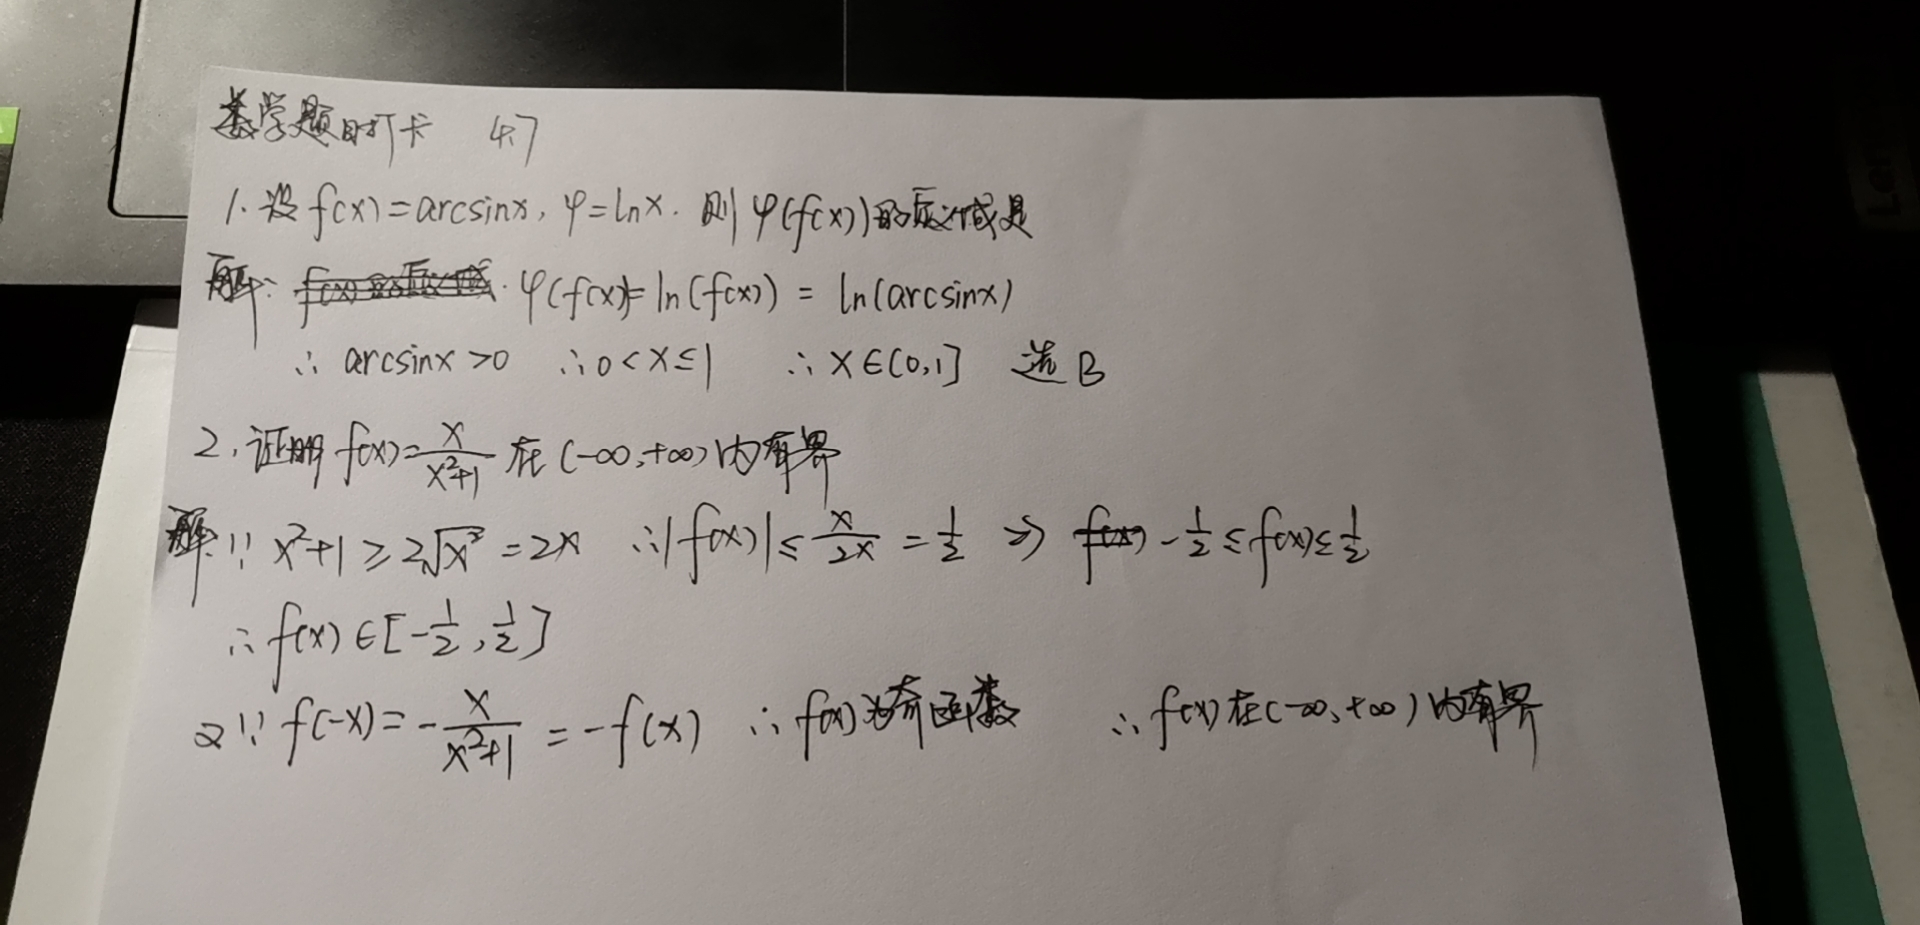 数学题目打卡 4.7
1.设 f(x)=arcsinx, φ=lnx. 则 φ(f(x))的定义域是
解: φ(f(x))=ln(f(x)) = ln(arcsinx)
∴ arcsinx >0 ∴0<x≤1 ∴ x∈(0,1] 选 B
2.证明 f(x)=x/(x²+1) 在(-∞,+∞)内有界
解: ∵ x²+1≥2√x² =2x ∴|f(x)|≤ x/2x = 1/2 ⇒ -1/2≤f(x)≤1/2
∴ f(x)∈[-1/2,1/2]
又∵ f(-x)= - x/(x²+1) = -f(x) ∴ f(x)为奇函数 ∴ f(x)在(-∞,+∞)内有界